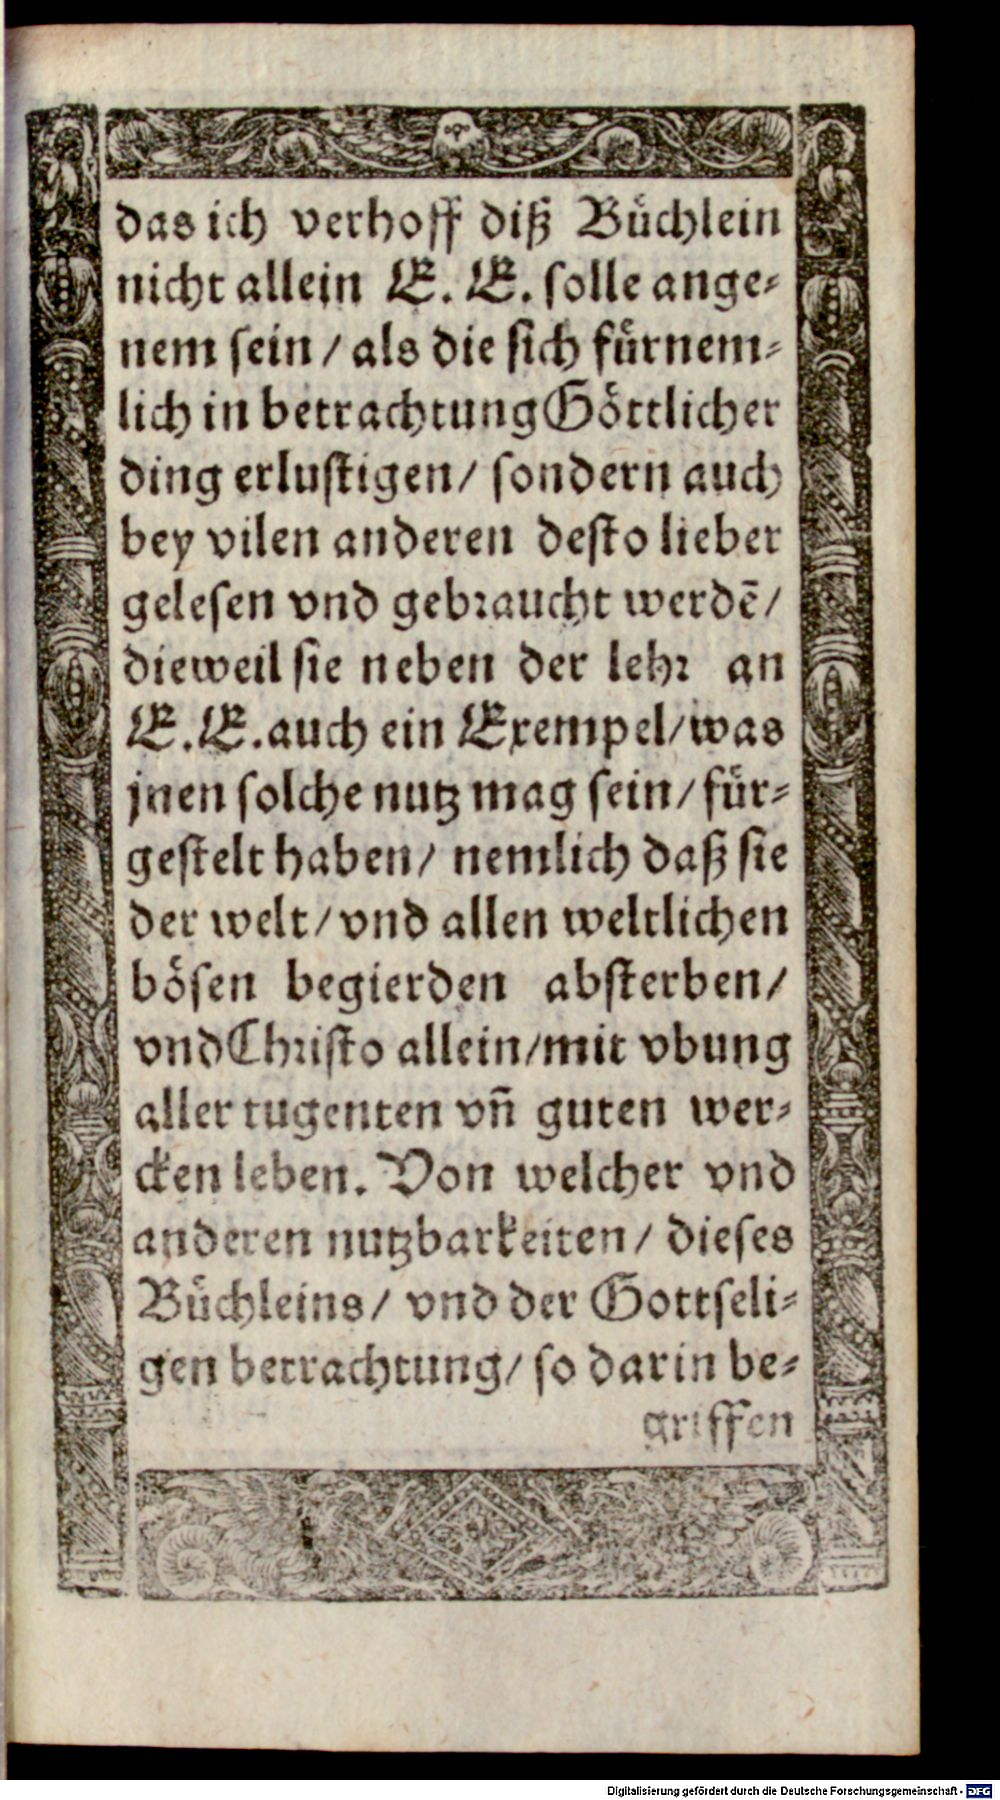 das ich verhoff diß Bůchlein
nicht allein E. E. solle ange⸗
nem sein / als die sich fürnem⸗
lich in betrachtung Göttlicher
ding erlustigen / sondern auch
bey vilen anderen desto lieber
gelesen vnd gebraucht werdē /
dieweil sie neben der lehr an
E. E. auch ein Exempel / was
jnen solche nutz mag sein / für⸗
gestelt haben / nemlich daß sie
der welt / vnd allen weltlichen
bösen begierden absterben /
vnd Christo allein / mit vbung
aller tugenten vñ guten wer⸗
cken leben. Von welcher vnd
anderen nutzbarkeiten / dieses
Büchleins / vnd der Gottseli⸗
gen betrachtung / so darin be⸗
griffen
Digitalisierung gefördert durch die Deutsche Forschungsgemeinschaft - DFG